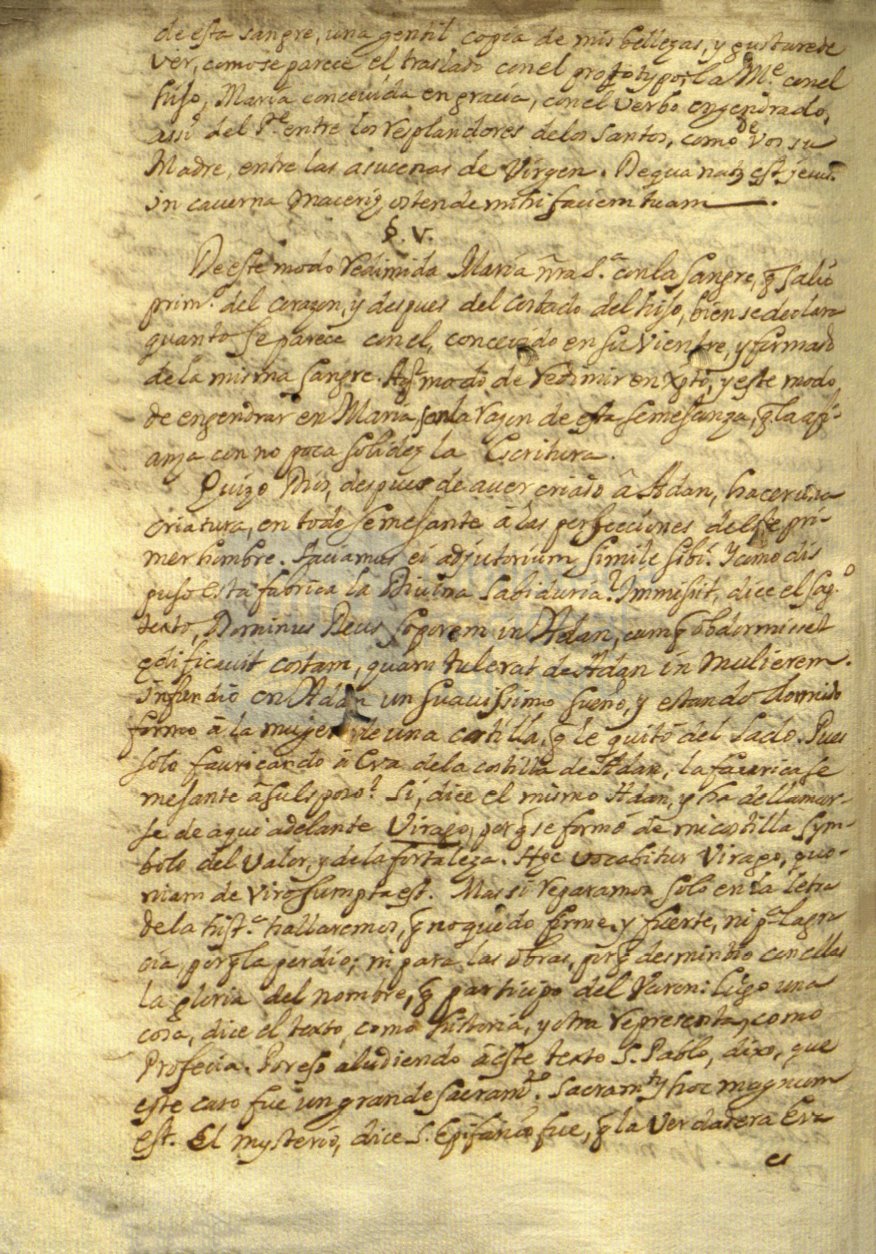 de esta sangre, una gentil copia de mis bellezas, y gustare de
ver, como se parece el traslado con el prototypo: la Me. con el
hijo, Maria concevida en gracia, con el Verbo engendrado,
assi del Pe. entre los resplandores de los Santos, como de Vos su
Madre, entre las asucenas de Virgen. De qua natq est Jesus.
in caverna maceriȩ ostende mihi faciem tuam
§. V.
De este modo redimida Maria ñra Sa. con la sangre, q̃ salio
primo. del corazon, y despues del costado del hijo, bien se declara
quanto se parece con el, concevido en su Vientre, y formado
de la misma sangre. modo de redimir en Xpto, y este modo
de engendrar en Maria, son la razon de esta semejanza, q̃ la afi-
anza con no poca solidez la Escritura.
Quizo Dios, despues de aver criado â Adan, hacer una
criatura, en todo semejante â las perfecciones deste pri-
mer hombre. Faciamus ei adjutorium simile sibi. Y como dis
puso esta fabrica la Divina Sabiduria? Immissit, dice el Sago.
texto, Dominus Deus soporem in Adan, cumq̃ obdormisset
ȩdificavit costam, quam tulerat de Adan in mulierem.
Infundio en Adan un suavissimo sueño, y estando dormido
formo â la mujer de una costilla, q̃ le quitô del lado. Pues
solo fauricando â Eva de la costilla de Adan, la faurica se
mejante â su esposo? Si, dice el mismo Adan, y ha de llamar-
se de aqui adelante Virago, porq̃ se formô de mi costilla sym-
bolo del valor, y de la fortaleza. Hȩc vocabitur Virago, quo-
niam de viro sumpta est. Mas si reparamos solo en la letra
de la hista. hallaremos, q̃ no quedo firme, y fuerte, ni pa. la gra
cia, porq̃ la perdio; ni para las obras, porq̃ desmintio con ellas
la gloria del nombre, q̃ participo del Varon: Luego una
cosa, dice el texto, como historia, y otra representa, como
Profecia. Por eso aludiendo â este texto S. Pablo, dixo, que
este caso fue un grande Sacramto. Sacramtq hoc magnum
est. El mysterio, dice S. Epifanio, fue, q̃ la verdadera Eva
es